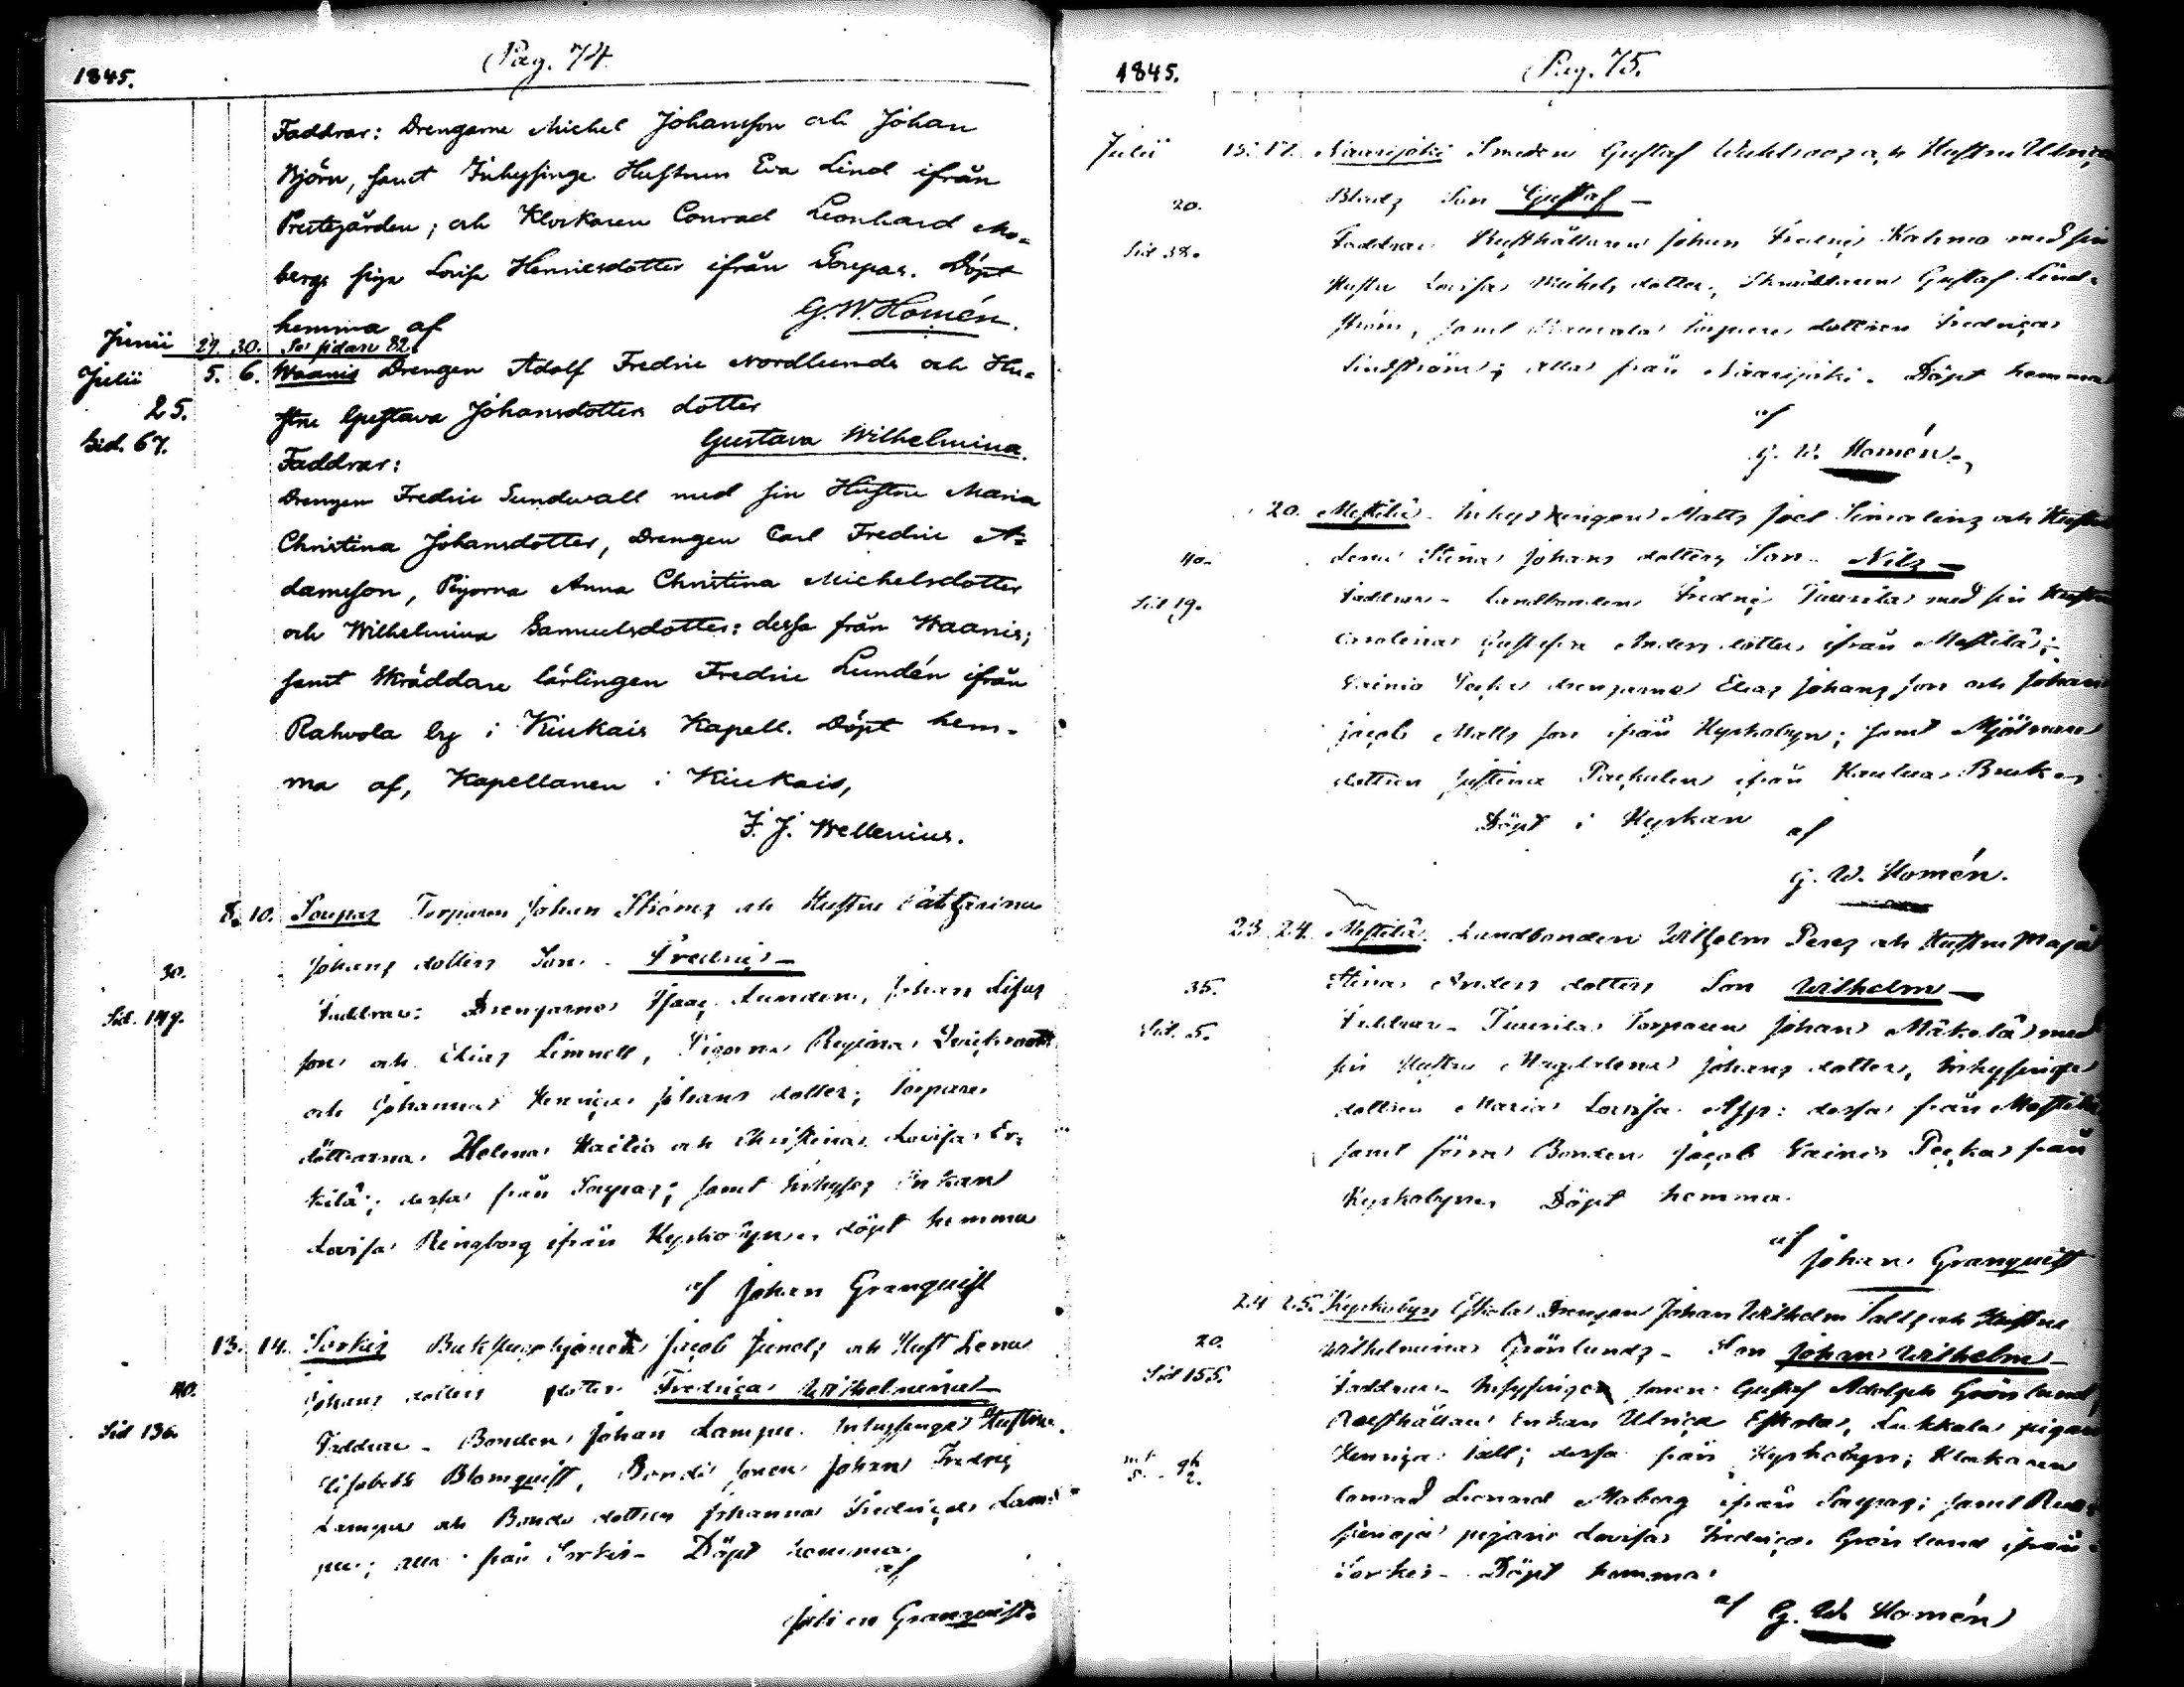 1845.
Pag. 74.
Faddrar: Drengarne Michel Johansson och Johan
Björn, samt Inhysinge Hustrun Eva Lind ifrån
Prestegården; och Klockaren Conrad Leonhard Mo-
bergs piga Lovisa Henricsdotter ifrån Sorpas. Döpt
hemma af G. W. Homén.
Junii 29. 30. Se sidan 82.
Julii 5. 6. Waanis Drengen Adolf Fredric Nordlunds och Hu-
25. stru Gustava Johansdotters dotter
Sid. 67. Gustava Wilhelmina.
Faddrar:
Drengen Fredric Sundwall med sin Hustru Maria
Christina Johansdotter, Drengen Carl Fredric A-
damsson, Pigorna Anna Christina Michelsdotter
och Wilhelmina Samuelsdotter: dessa från Waanis;
samt Skräddare lärlingen Fredric Lundén ifrån
Rahvola by i Kiukais Kapell. Döpt hem-
ma af, Kapellanen i Kiukais,
F. J. Wellenius.
8. 10. Sorpas Torparen Johan Ströms och Hustru Catharina
30. Johans dotters Son. Fredric
Sid. 149. Faddrar: Drengarne Isaac Lunden, Johan
son och Elias Limnell, Pigorna Regina
och Johanna Henrica Johans dotter; Torpare
döttrarna Helena och Christina Lovisa Er-
kilä; dessa från Sorpas; samt Inhyses Enkan
Lovisa Ringborg ifrån Kyrkobyn. döpt hemma
af Johan Granquist
13. 14. Sorkis Jacob och Hust Lena
40. Johans dotters dotter Fredrica Wilhelmina
Sid 136. Faddrar Bonden Johan Lampu. Inhysinge Hustru
Elisabeth Blomquist, Bonde sonen Johan Fredric
Lampu och Bonde dottren Johanna Fredrica Lam-
pu; alla från Sorkis Döpt hemma
af
Johan Granquist.
1845.
Pag. 75.
Julii 15. 17. Naarijoki Smeden Gustaf och Hustru Ulrica
20. Son Gustaf
Sid 38. Faddrar Rusthållaren Johan Fredric med sin
Hustru Lovisa Michels dotter, Skräddaren Gustaf Lind-
ström, samt dottren Fredrica
Lindström; alla från Naarijoki. Döpt hemma
af
G. W. Homén.
20. Mestilä Matts Joel och Hustru
40. Lena Stina Johans dotters Son Nils
Sid 19. Faddrar Landbonden Fredric Tuurila med sin Hustru
Carolina Anders dotter ifrån Mestilä;
Vainio drengarne Elias Johans son och Johan
Jacob Matts son ifrån Kyrkobyn; samt Mjölnare
dottren Justina ifrån Kauttua Bruk
Döpt i Kyrkan af
G. W. Homén.
23 24. Mestilä. Landbonden Wilhelm och Hustru Maja
35. Stina Anders dotters Son Wilhelm
Sid. 5. Faddrar Tuurila Torparen Johan Mäkelä med
sin Hustru Magdalena Johans dotter, Inhysinge
dottren Maria Lovisa dessa från Mestilä
samt förra Bonden Jacob Vainio från
Kyrkobyn. Döpt hemma.
af Johan Granquist
24 25. Kyrkobyn Eskola Drengen Johan Wilhelm Talls och Hustru
20. Wilhelmina Grönlunds Son Johan Wilhelm
Sid 155. Faddrar sonen Gustaf Adolph Grönlund
Rusthållare Enkan Ulrica Eskola, Lukkala pigan
Henrica Tall; dessa från Kyrkobyn; Klockaren
Conrad Leonard Moberg ifrån Sorpas; samt
pigan Lovisa Fredrica Grönlund ifrån
Sorkis Döpt hemma
af G. W. Homén